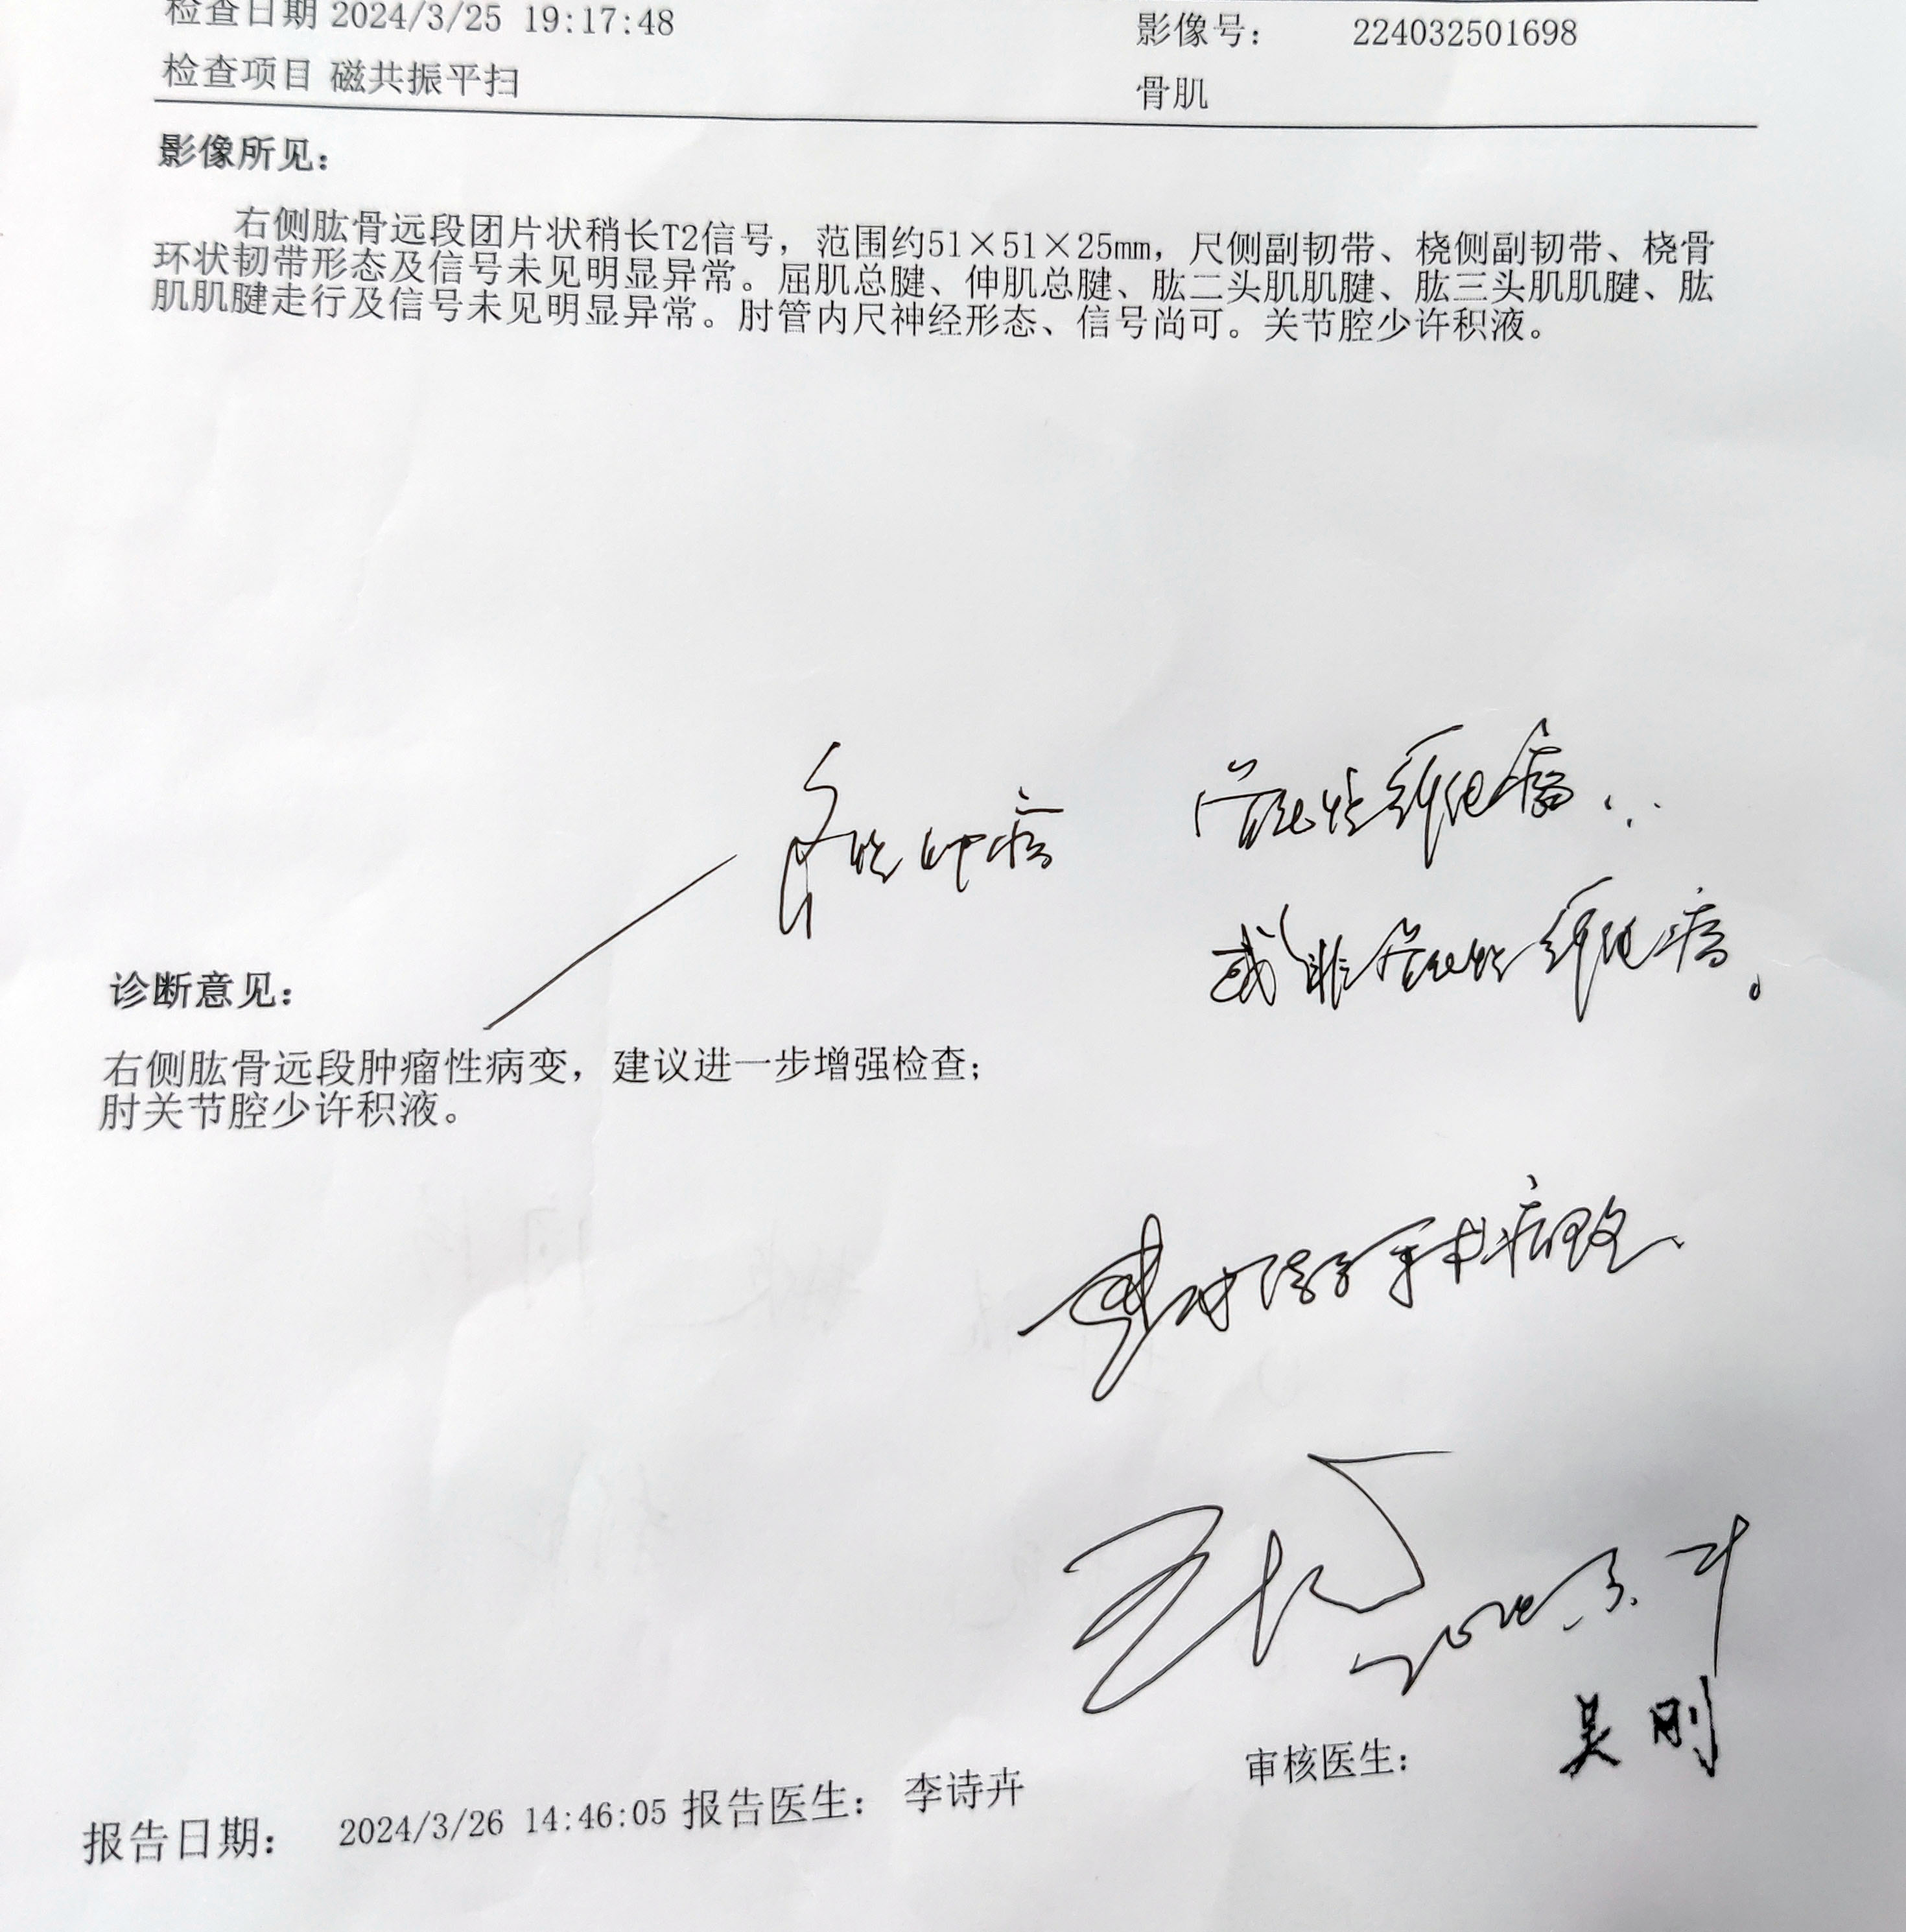 检查日期 2024/3/25 19:17:48 影像号： 224032501698
检查项目 磁共振平扫 骨肌
影像所见：
右侧肱骨远段团片状稍长T2信号，范围约51×51×25mm，尺侧副韧带、桡侧副韧带、桡骨
环状韧带形态及信号未见明显异常。屈肌总腱、伸肌总腱、肱二头肌肌腱、肱三头肌肌腱、肱
肌肌腱走行及信号未见明显异常。肘管内尺神经形态、信号尚可。关节腔少许积液。
骨化性纤维瘤
或非骨化性纤维瘤。
诊断意见：
右侧肱骨远段肿瘤性病变，建议进一步增强检查；
肘关节腔少许积液。
手术病理
审核医生： 吴刚
报告日期： 2024/3/26 14:46:05 报告医生： 李诗卉